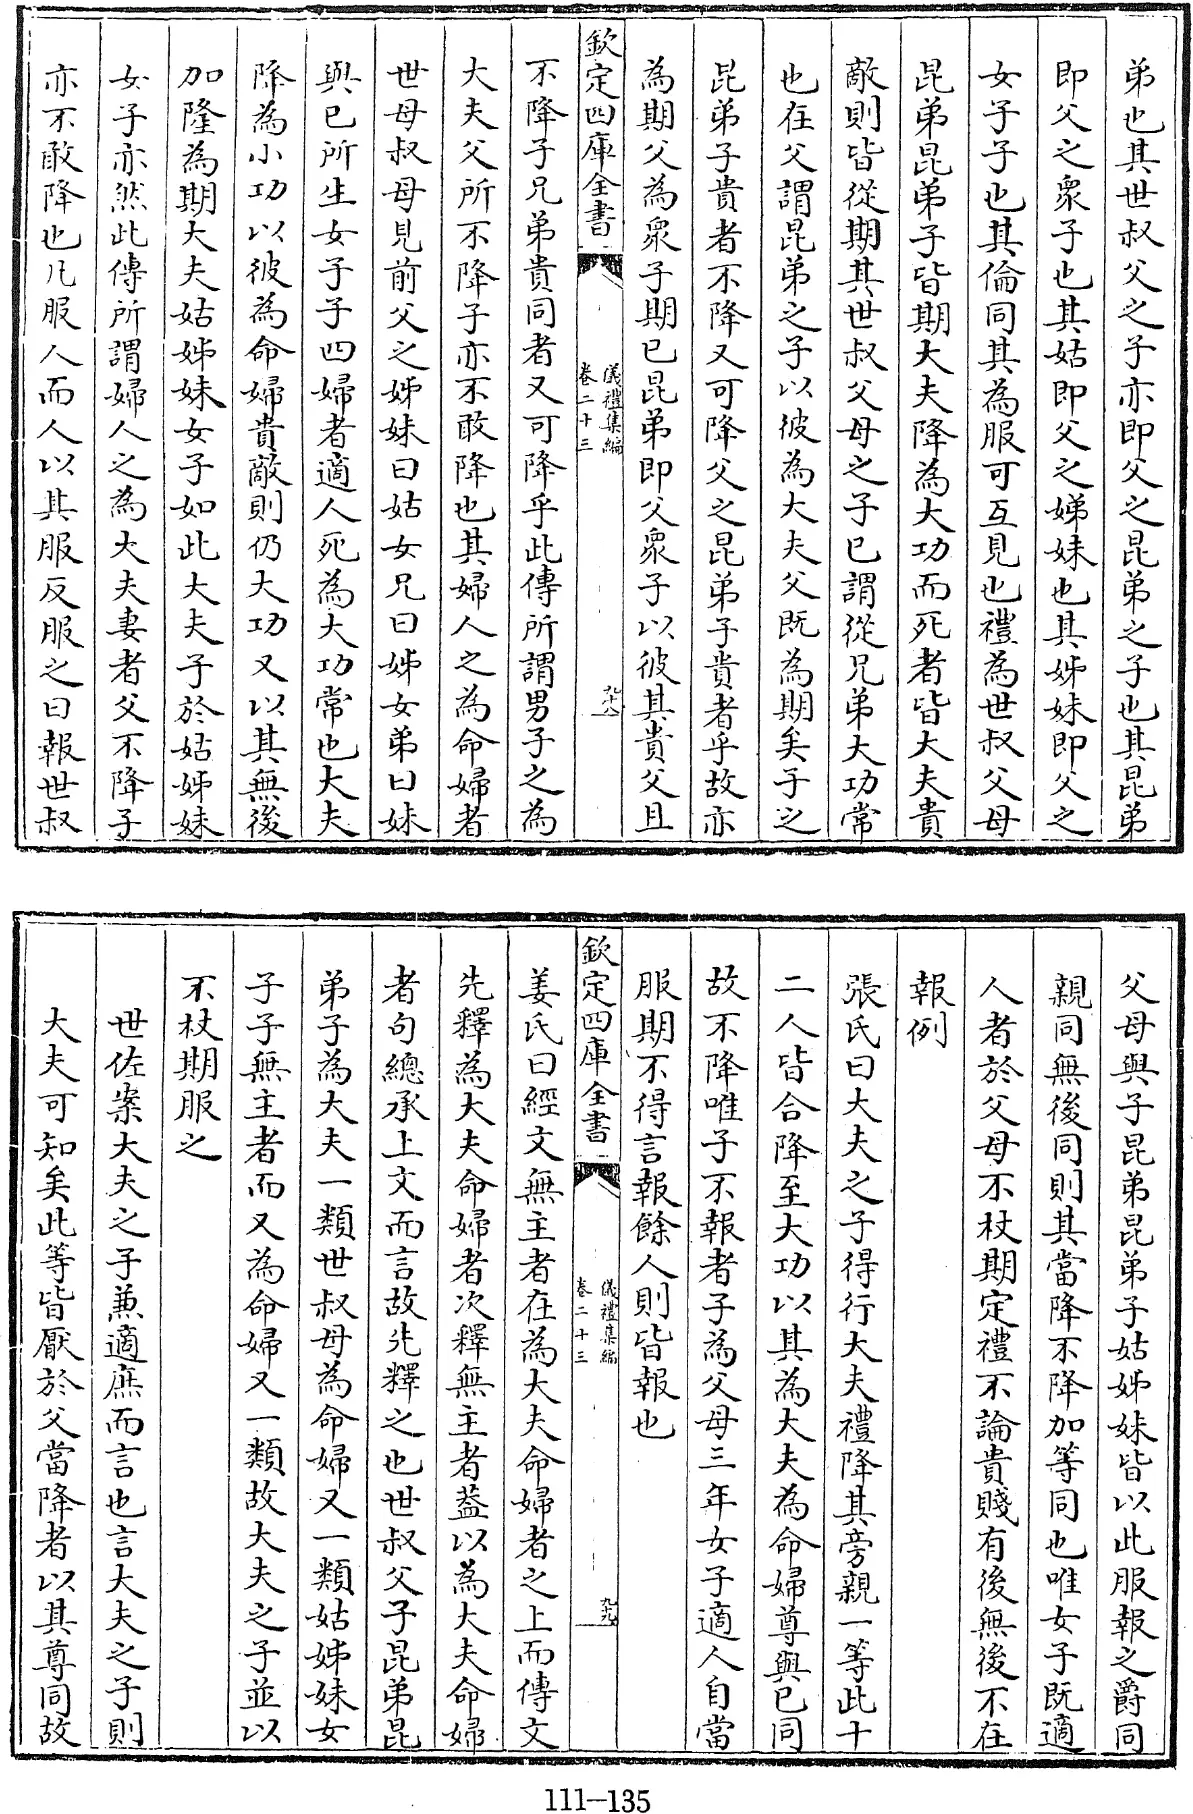 弟也其世叔父之子亦即父之昆弟之子也其昆弟
即父之衆子也其姑即父之娣妹也其姊妹即父之
女子子也其倫同其為服可互見也禮為世叔父母
昆弟昆弟子皆期大夫降為大功而死者皆大夫貴
敵則皆從期其世叔父母之子已謂從兄弟大功常
也在父謂昆弟之子以彼為大夫父既為期矣子之
昆弟子貴者不降又可降父之昆弟子貴者乎故亦
為期父為衆子期已昆弟即父衆子以彼其貴父且
欽定四庫全書
儀禮集編
卷二十三
九十八
不降子兄弟貴同者又可降乎此傳所謂男子之為
大夫父所不降子亦不敢降也其婦人之為命婦者
世母叔母見前父之姊妹曰姑女兄曰姊女弟曰妹
與已所生女子子四婦者適人死為大功常也大夫
降為小功以彼為命婦貴敵則仍大功又以其無後
加隆為期大夫姑姊妹女子如此大夫子於姑姊妹
女子亦然此傳所謂婦人之為大夫妻者父不降子
亦不敢降也凡服人而人以其服反服之曰報世叔
父母與子昆弟昆弟子姑姊妹皆以此服報之爵同
親同無後同則其當降不降加等同也唯女子既適
人者於父母不杖期定禮不論貴賤有後無後不在
報例
張氏曰大夫之子得行大夫禮降其旁親一等此十
二人皆合降至大功以其為大夫為命婦尊與已同
故不降唯子不報者子為父母三年女子適人自當
服期不得言報餘人則皆報也
欽定四庫全書
儀禮集編
卷二十三
九十九
姜氏曰經文無主者在為大夫命婦者之上而傳文
先釋為大夫命婦者次釋無主者葢以為大夫命婦
者句總承上文而言故先釋之也世叔父子昆弟昆
弟子為大夫一類世叔母為命婦又一類姑姊妹女
子子無主者而又為命婦又一類故大夫之子並以
不杖期服之
世佐案大夫之子兼適庶而言也言大夫之子則
大夫可知矣此等皆厭於父當降者以其尊同故
111—135